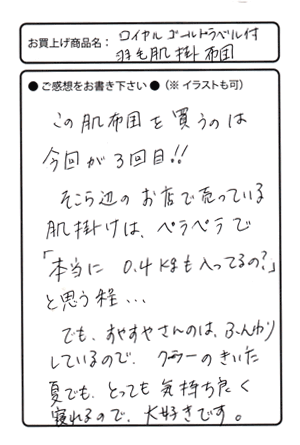 お買上げ商品名： ロイヤルゴールドラベル付
羽毛肌掛布団
● ご感想をお書き下さい ●（※ イラストも可）
この肌布団を買うのは
今回が3回目!!
そこら辺のお店で売っている
肌掛けは、ペラペラで
「本当に 0.4kgも入ってるの?」
と思う程...
でも、すやすやさんのは、ふんわり
しているので、クーラーのきいた
夏でも、とっても気持ち良く
寝れるので、大好きです。